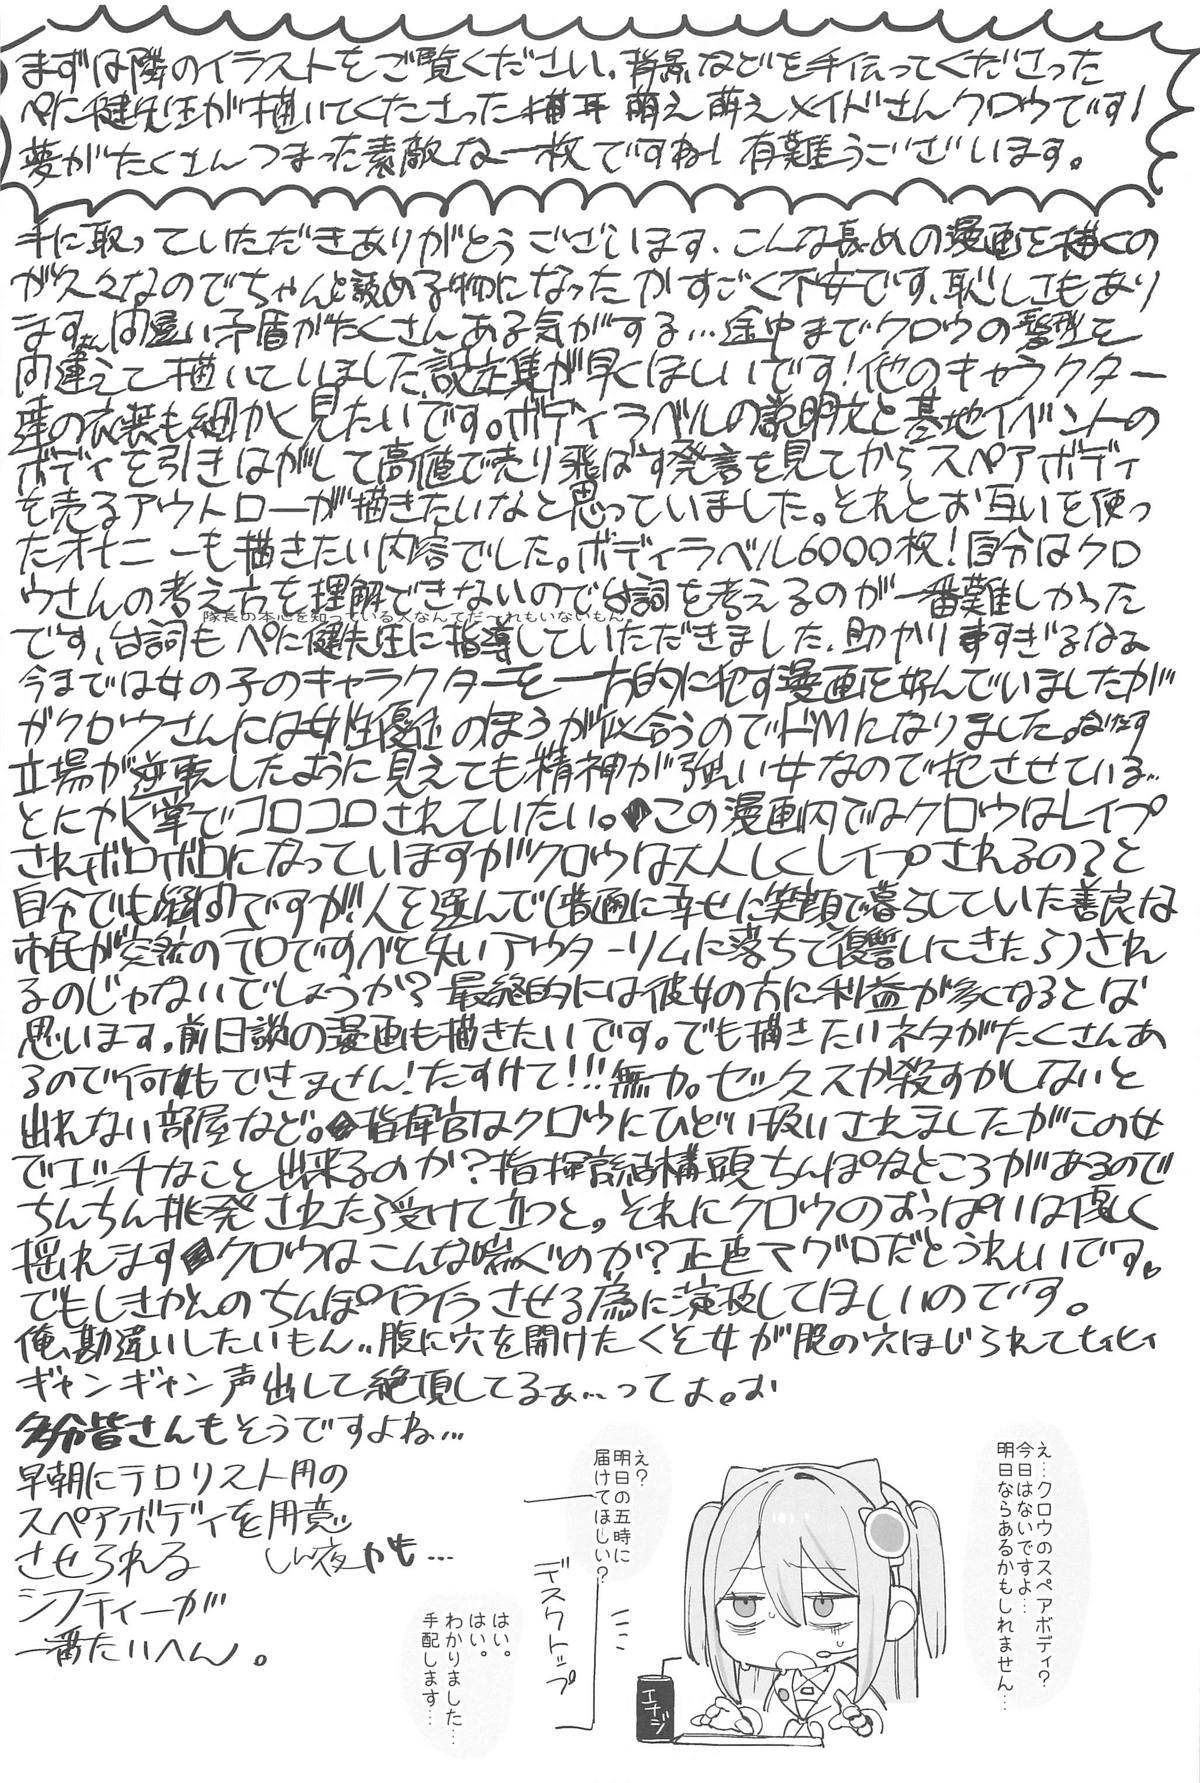 まずは隣のイラストをご覧ください。背景などを手伝ってくださった
ぺに健先生が描いてくださった猫耳萌え萌えメイドさんクロウです!
夢がたくさんつまった素敵な一枚ですね!有難うございます。
手に取っていただきありがとうございます、こんな長めの漫画を描くの
が久々なのでちゃんと読める物になったかすごく不安です、恥しさもあり
ます、間違い矛盾がたくさんある気がする…途中までクロウの髪型を
間違えて描いていました設定集が早くほしいです!他のキャラクター
達の衣装も細かく見たいです。ボディラベルの説明文と基地イベントの
ボディを引きはがして高値で売り飛ばす発言を見てからスペアボディ
を売るアウトローが描きたいなと思っていました。それとお互いを使っ
たオナニーも描きたい内容でした。ボディラベル6000枚!自分はクロ
ウさんの考え方を理解できないので台詞を考えるのが一番難しかった
隊長の本心を知っている人なんてだーれもいないもん。
です、台詞もぺに健先生に指導していただきました、助かりますすぎるなぁ
今までは女の子のキャラクターを一方的に犯す漫画を好んでいましたが
がクロウさんには女性優位のほうが似合うのでドMになりました。
立場が逆転したように見えても精神が強い女なので犯させている…
とにかく掌でコロコロされていたい。◆この漫画内ではクロウはレイプ
されボロボロになっていますがクロウは大人しくレイプされるの?と
自分でも疑問ですが、人を選んで(普通に幸せに笑顔で暮らしていた善良な
市民が突然のテロですべを失いアウターリムに落ちて復讐しにきたら)され
るのじゃないでしょうか?最終的には彼女の方に利益が多くなるとは
思います。前日談の漫画も描きたいです。でも描きたいネタがたくさんあ
るので何もできません!たすけて!!!無力。セックスか殺すかしないと
出れない部屋など。◆指揮官はクロウにひどい扱いされましたがこの女
でエッチなこと出来るのか?指揮官結構頭ちんぽなところがあるので
ちんちん挑発されたら受けて立つと。それにクロウのおっぱいは優しく
揺れます◆クロウはこんな喘ぐのか?正直マグロだとうれしいです。
でもしきかんのちんぽイライラさせる為に演技してほしいのです。
俺、勘違いしたいもん、腹に穴を開けたくそ女が股の穴ほじられてヒィヒィ
ギャンギャン声出して絶頂してるぁ…ってよ。お
多分皆さんもそうですよね…
早朝にテロリスト用の
スペアボディを用意
させられる しん夜かも…
シフティーが
一番たいへん。
え…クロウのスペアボディ?
今日はないですよ…
明日ならあるかもしれません…
え?
明日の五時に
届けてほしい?
デスクトップ
はい。
はい。
わかりました…
手配します…
エナジ